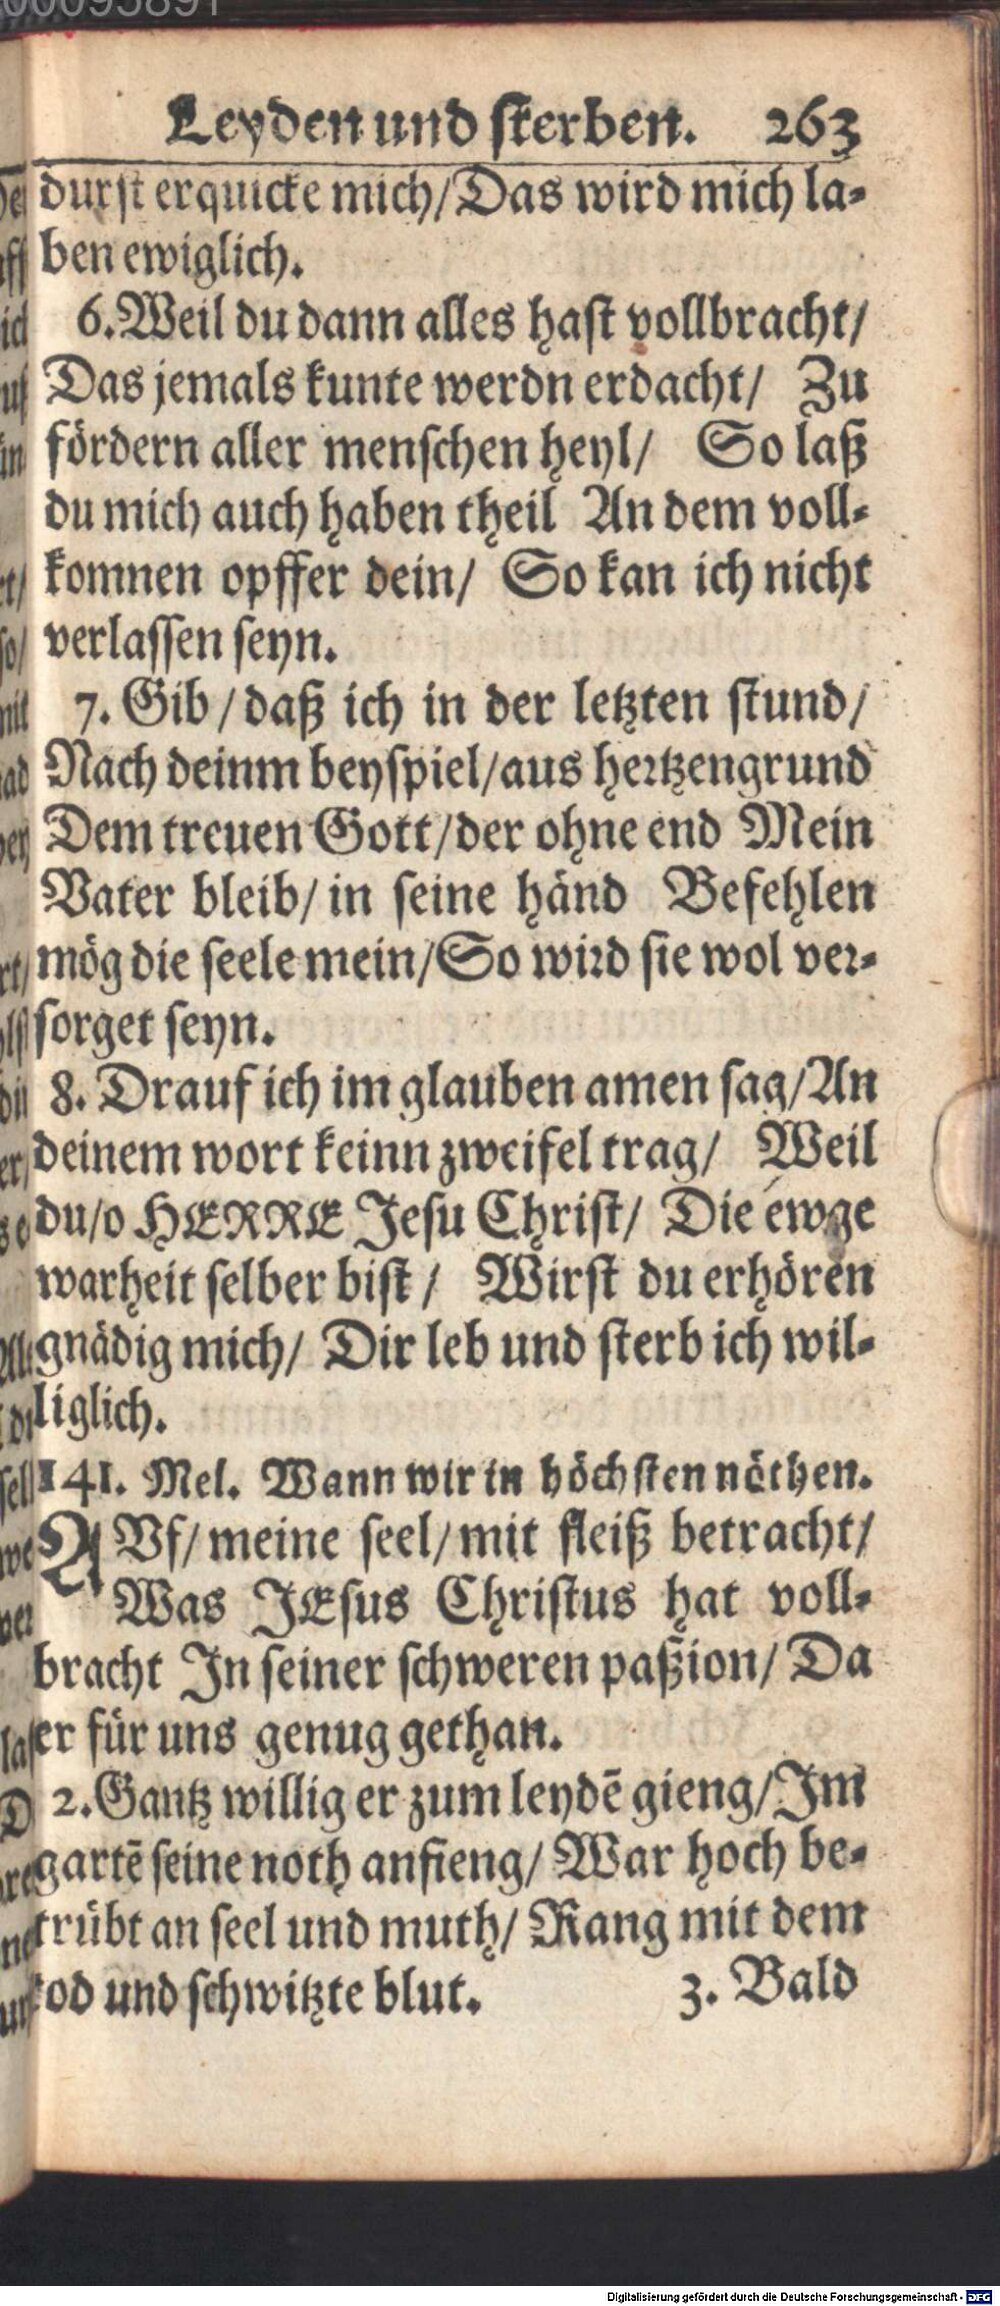 Leyden und sterben. 263
durst erquicke mich/Das wird mich la-
ben ewiglich.
6. Weil du dann alles hast vollbracht/
Das jemals kunte werdn erdacht/ Zu
fördern aller menschen heyl/ So laß
du mich auch haben theil An dem voll-
komnen opffer dein/ So kan ich nicht
verlassen seyn.
7. Gib/daß ich in der letzten stund/
Nach deinm beyspiel/aus hertzengrund
Dem treuen Gott/der ohne end Mein
Vater bleib/in seine händ Befehlen
mög die seele mein/So wird sie wol ver-
sorget seyn.
8. Drauf ich im glauben amen sag/An
deinem wort keinn zweifel trag/ Weil
du/o HERRE Jesu Christ/ Die ewge
warheit selber bist/ Wirst du erhören
gnädig mich/ Dir leb und sterb ich wil-
liglich.
141. Mel. Wann wir in höchsten nöthen.
AUf/meine seel/mit fleiß betracht/
Was JEsus Christus hat voll-
bracht In seiner schweren paßion/Da
er für uns genug gethan.
2. Gantz willig er zum leydē gieng/Im
gartē seine noth anfieng/ War hoch be-
trübt an seel und muth/Rang mit dem
tod und schwitzte blut. 3. Bald
Digitalisierung gefördert durch die Deutsche Forschungsgemeinschaft - DFG